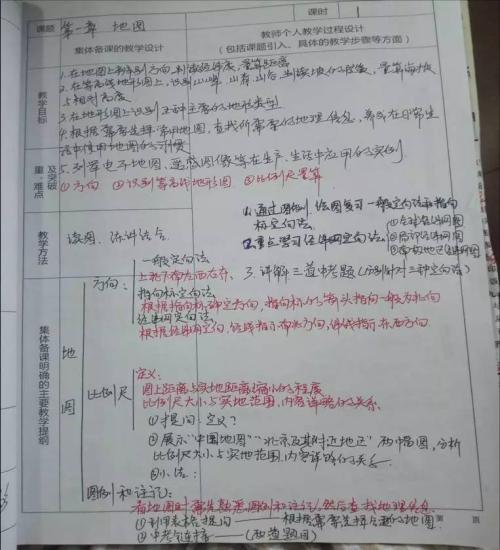 课时 1
课题 第一章 地图
集体备课的教学设计
教师个人教学过程设计
(包括课题引入、具体的教学步骤等方面)
教学目标
1.在地图上辨别方向,判读经纬度,量算距离
2.在等高线地形图上,识别山峰、山脊、山谷,判读坡的陡缓,量算海拔
与相对高度
3.在地形图上识别五种主要的地形类型
4.根据需要选择常用地图,查找所需要的地理信息,养成在日常生
活中使用地图的习惯
5.列举电子地图、遥感图像等在生产、生活中应用的实例
重、难点及突破
①方向 ②识别等高线地形图 ③比例尺量算
教学方法
读图、练讲结合
1.通过图例、绘图复习一般定向法和指向
标定向法。
2.重点学习经纬网定向法。
3.详解三道中考题(分别针对三种定向法)
集体备课明确的主要教学提纲
地图
方向:
一般定向法
上北下南左西右东、
指向标定向法
根据指向标确定方向,指向标的箭头指向一般为北向
经纬网定向法
根据经纬网定向,经线指示南北方向,纬线指示东西方向
比例尺
定义:
图上距离与实地距离缩小的程度
比例尺大小与实地范围,内容详略的关系
①提问:定义?
②展示“中国地图”“北京及其附近地区”两幅图,分析
比例尺大小与实地范围、内容详略的关系
③小结:
图例和注记:
看地图时需先熟悉图例和注记,然后查找地理信息
①利用表格提问——根据需要选择合适的地图
②中考链接——(两道题目)
第 页